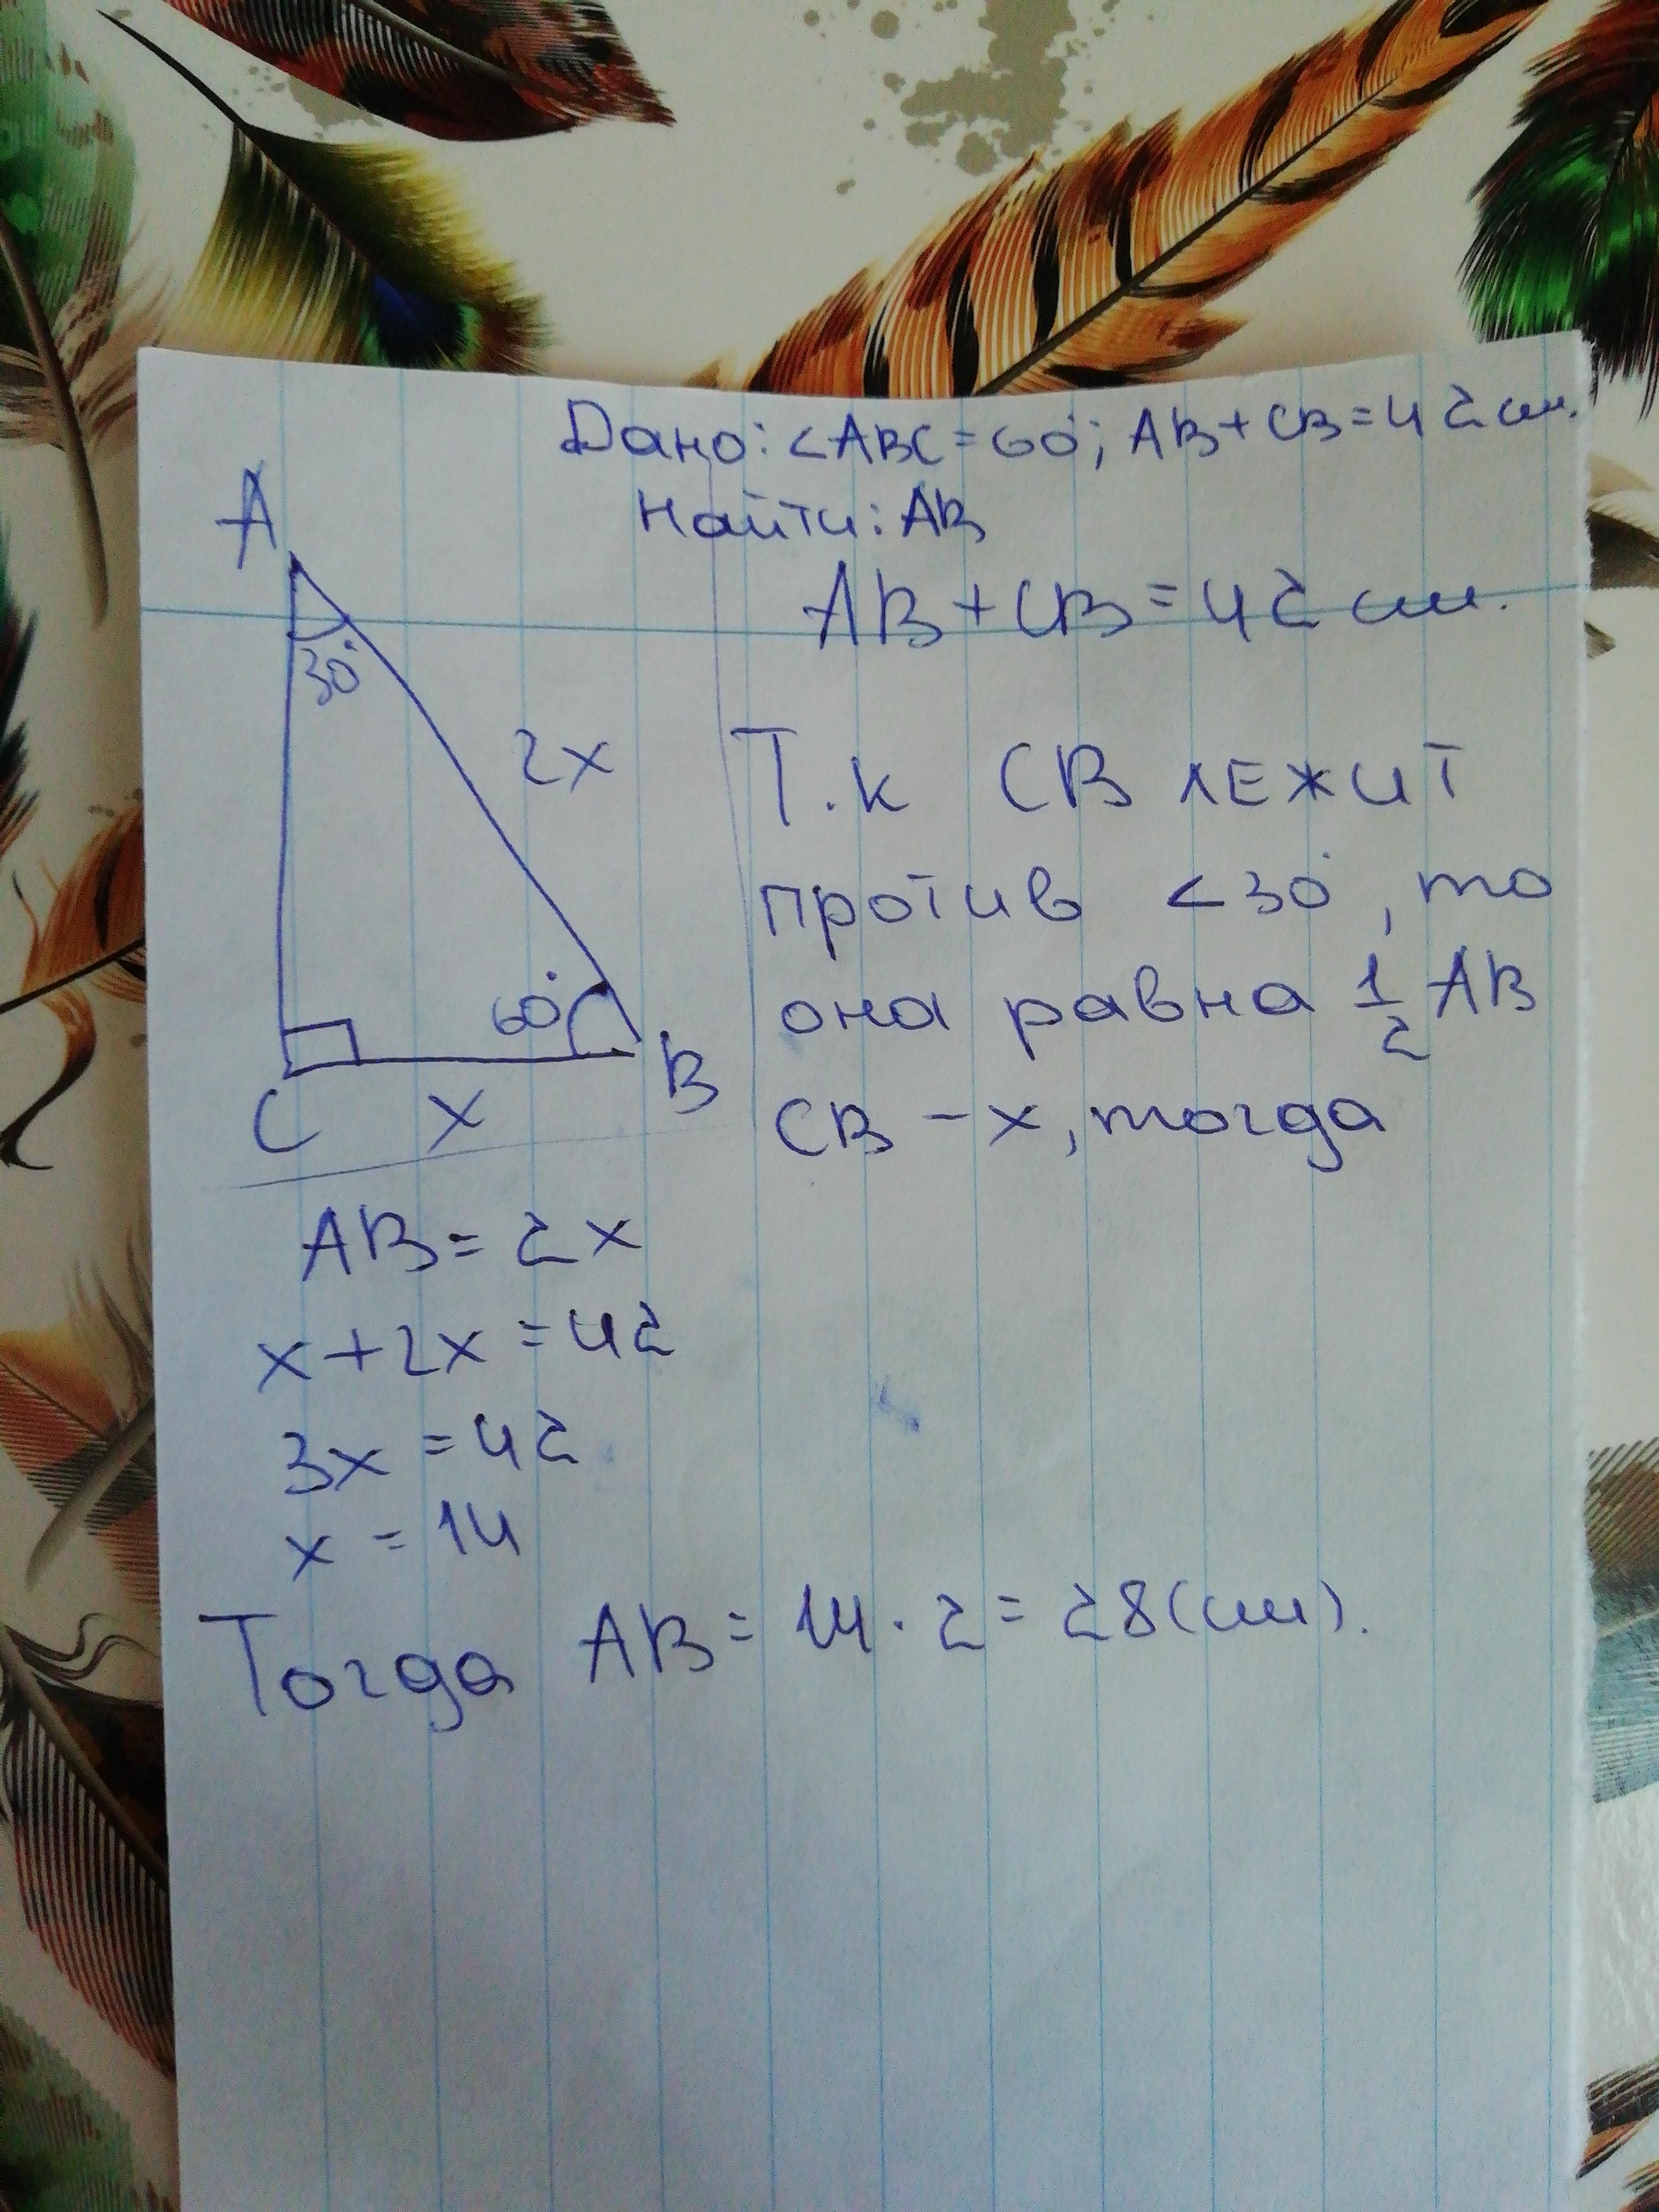 Дано: <ABC=60°; AB+CB=42см.
Найти: AB
A
AB+CB=42см.
30°
2x
Т.к CB лежит
против <30°, то
она равна 1/2 AB
60°
B
C
x
CB - x, тогда
AB=2x
x+2x=42
3x=42
x=14
Тогда AB=14·2=28(см).